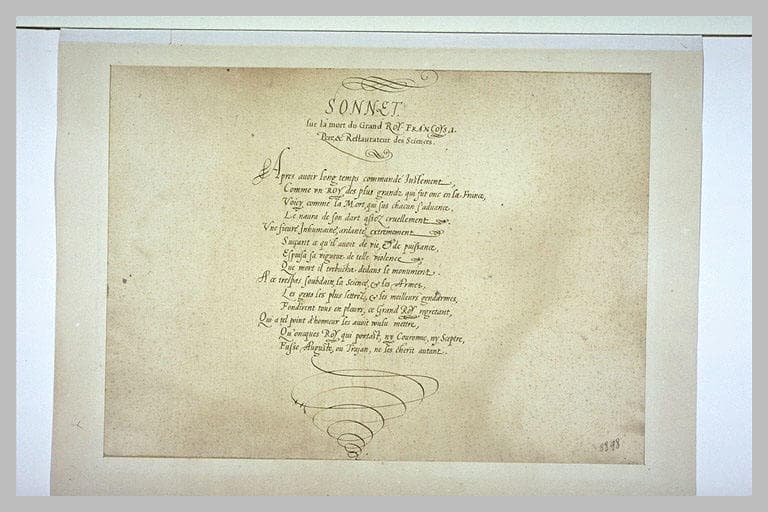 SONNET.
sur la mort du Grand ROY FRANCOYS .1.
Pere & Restaurateur des Sciences.
Apres auoir long temps commandé Iustement,
Comme vn ROY des plus grandz qui fut onc en la France,
Voicy comme la Mort, qui sus chacun s'aduance,
Le naura de son dart assez cruellement.
Vne fieure Inhumaine, ardante, extremement
Sucçant ce qu'il auoit de vie, & de puissance,
Espuisa sa vigueur de telle violence
Que mort il trebucha dedans le monument.
A ce trespas soubdain, la Science, & les Armes,
Les gens les plus lettrez, & les meilleurs gendarmes,
Fondirent tous en pleurs, ce Grand Roy regretant,
Qui a tel point d'honneur les auoit voulu mettre,
Qu'oncques ROY, qui portast, ny Couronne, ny Sceptre,
Fusse, Auguste, ou Trajan, ne les cherit autant.
8898